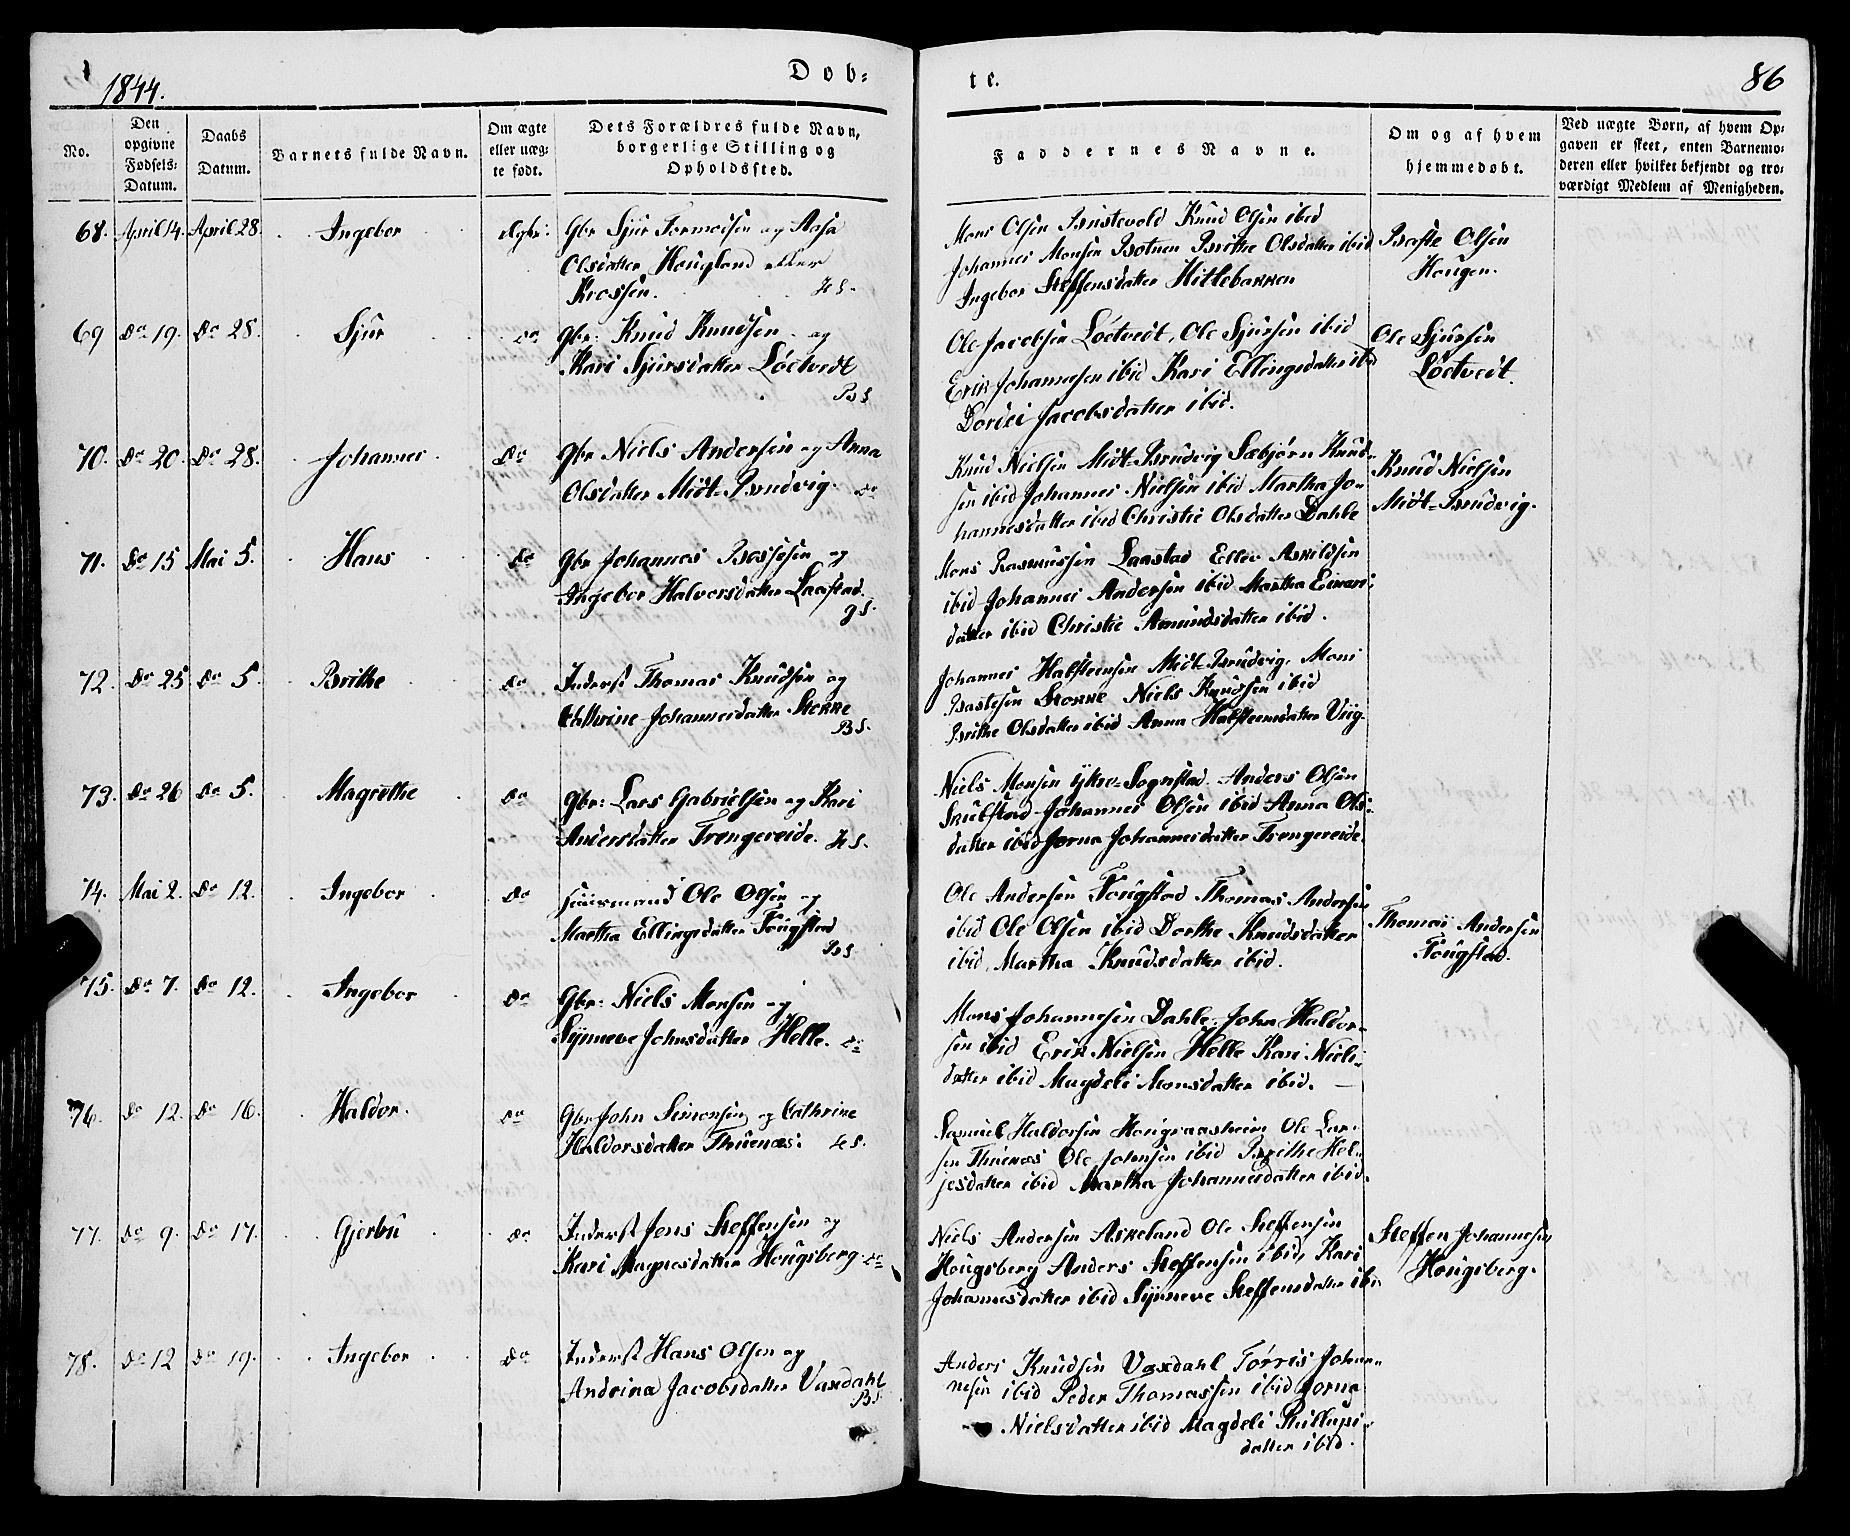 1844.
Døb-
te.
86
No.
Den opgivne Fødsels-Datum.
Daabs Datum.
Barnets fulde Navn.
Om ægte eller uægte født.
Dets Forældres fulde Navn, borgerlige Stilling og Opholdssted.
Faddernes Navne.
Om og af hvem hjemmedøbt.
Ved uægte Børn, af hvem Opgaven er skeet, enten Barnemoderen eller hvilket bekjendt og troværdigt Medlem af Menigheden.
68. April 14. April 28. Ingebor
Gbr Sjur Tormodsen og Aasa
Olsdatter Hougland eller
Krossen. HS.
Mons Olsen Brustevold Knud Olsen ibid
Johannes Monsen Botnen Brithe Olsdatter ibid
Ingebor Steffensdatter Hittebakken
Baste Olsen
Hougen.
69 Do 19. Do 28. Sjur do
Gbr: Knud Knudsen og
Kari Sjursdatter Löetvedt
BS
Ole Jacobsen Löetvedt, Ole Sjursen ibid
Erik Johannesen ibid Kari Ellingsdatter ibid
Dordei Jacobsdatter ibid.
Ole Sjursen
Löetvedt.
70. Do 20. Do 28. Johannes Do
Gbr Niels Andersen og Anna
Olsdatter Midt-Brudvig. do
Knud Nielsen Midt-Brudvig Sæbjørn Knud-
sen ibid Johannes Nielsen ibid Martha Jo-
hannesdatter ibid Christie Olsdatter Dahle
Knud Nielsen
Midt-Brudvig.
71. Do 15 Mai 5. Hans Do
Gbr Johannes Bossesen og
Ingebor Halvorsdatter Laastad.
gS.
Mons Rasmussen Laastad Ellev Askildsen
ibid Johannes Andersen ibid Martha Einars-
datter ibid Christie Amundsdatter ibid.
72. Do 25 Do 5. Brithe Do
Inderst Thomas Knudsen og
Cathrine Johannesdatter Stokke
BS.
Johannes Halsteinsen Midt-Brudvig. Mons
Bastesen Stokke Niels Knudsen ibid
Brithe Olsdatter ibid Anna Halsteinsdatter Viig.
73. Do 26 Do 5. Magrethe Do
Gbr: Lars Gabrielsen og Kari
Andersdatter Trengereide. HS.
Niels Monsen Ytre-Sognstad. Anders Olsen
Skulstad Johannes Olsen ibid Anna Ols-
datter ibid Jorna Johannesdatter Trengereide.
74. Mai 2. Do 12. Ingebor Do
Huusmand Ole Olsen og
Martha Ellingsdatter Fougstad
HS
Ole Andersen Fougstad Thomas Andersen
ibid Ole Olsen ibid Dorthe Knudsdatter
ibid. Martha Knudsdatter ibid.
Thomas Andersen
Fougstad.
75. Do 7. Do 12. Ingebor Do
Gbr: Niels Monsen og
Synneve Johnsdatter Helle. do
Mons Johannesen Dahle. John Haldor-
sen ibid Erik Nielsen Helle Kari Niels-
datter ibid Magdeli Monsdatter ibid.
76. Do 12. Do 16. Haldor. Do
Gbr John Simonsen og Cathrine
Haldorsdatter Thuenæs. HS.
Samuel Haldorsen Ole Lar-
sen Thuenæs Ole Johnsen ibid Brithe Hel-
jesdatter ibid Martha Johannesdatter ibid.
77. Do 9. Do 17. Gjerbu do
Inderst Jens Steffensen og
Kari Magnesdatter Hougsberg. do
Niels Andersen Askeland Ole Steffensen
Hougsberg Anders Steffensen ibid, Kari
Johannesdatter ibid Synneve Steffensdatter ibid
Steffen Johannesen
Hougsberg.
78. Do 12 Do 19. Ingebor Do
Inderst Hans Olsen og
Andrina Jacobsdatter Vaxdahl
BS
Anders Knudsen Vaxdahl Torris Johan-
nesen ibid Peder Thomassen ibid Jorna
Nielsdatter ibid Magdeli Phillups-
datter ibid.